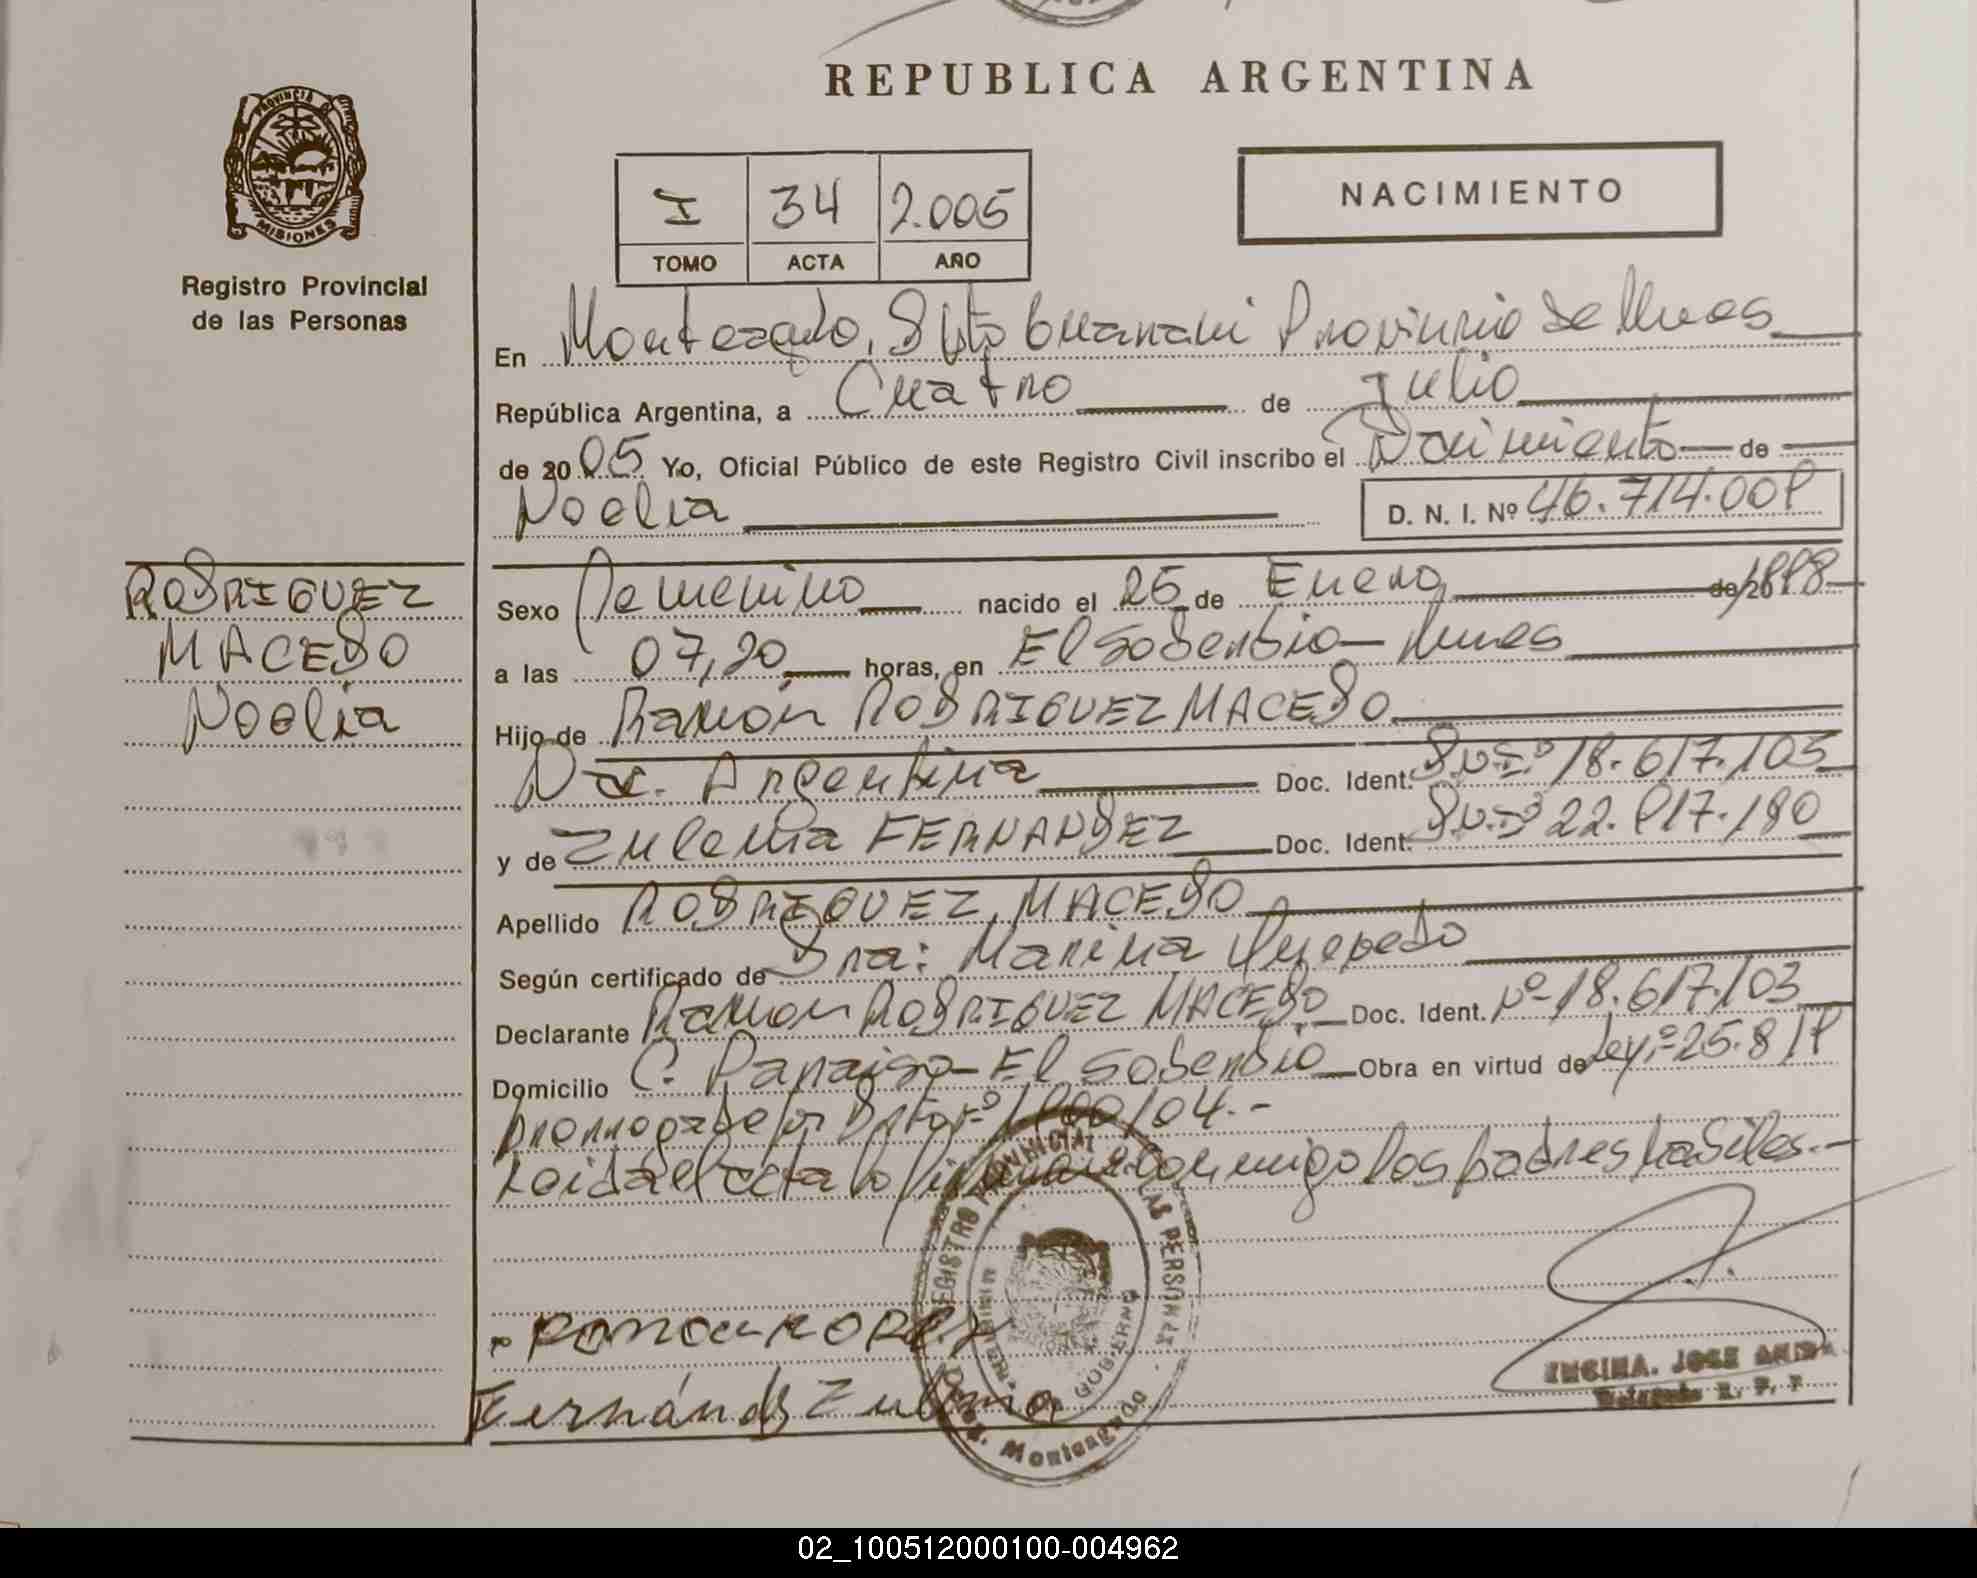 REPUBLICA ARGENTINA
PROVINCIA DE
MISIONES
Registro Provincial
de las Personas
I 34 2.005
TOMO ACTA AÑO
NACIMIENTO
En Monteagudo, Dpto Guarani Provincia de Mnes
República Argentina, a Cuatro de Julio
de 2005 Yo, Oficial Público de este Registro Civil inscribo el Nacimiento de
Noelia D. N. I. Nº 46.714.009
RODRIGUEZ
MACEDO
Noelia
Sexo Femenino nacido el 26 de Enero de 1998
a las 07,20 horas, en El Soberbio - Mnes
Hijo de Ramón RODRIGUEZ MACEDO
Na. Argentina Doc. Ident. D.N.I.º 18.617.103
y de Zulema FERNANDEZ Doc. Ident. D.N.I.º 22.917.190
Apellido RODRIGUEZ MACEDO
Según certificado de Sra: Marina
Declarante Ramón RODRIGUEZ MACEDO Doc. Ident. Nº 18.617.103
Domicilio C. Paraiso - El Soberbio Obra en virtud de Ley:º 25.819
prorrogado por Dctoº 1900/04.-
Leida el acta la firman conmigo los padres habiles.-
REGISTRO PROVINCIAL LAS PERSONAS
GOBIERNO
Monteagudo
Fernánds Zulema
ENCINA. JOSE
Delegado R. P. P
02_100512000100-004962